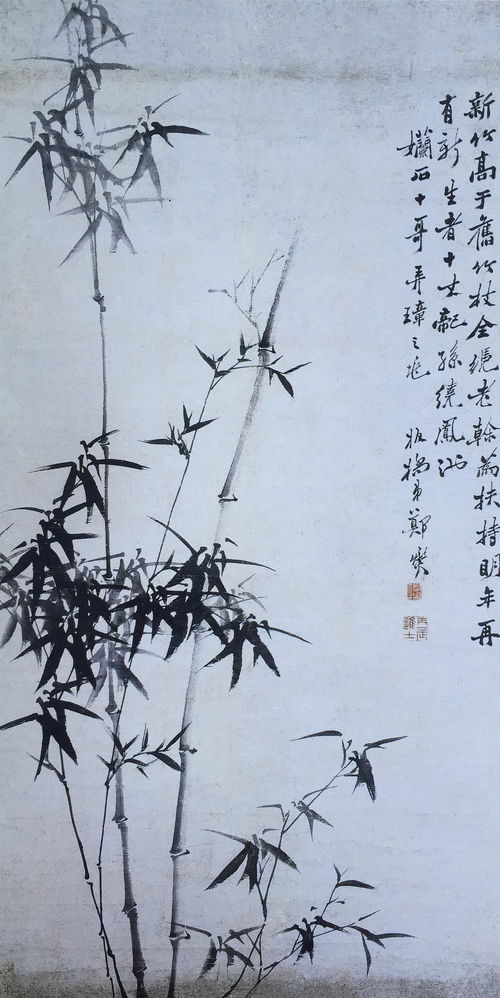 新竹高于舊竹枝全凭老榦為扶持明年再
有新生者十丈龍孫繞鳳池
孏石十哥弄璋之兆 板橋弟鄭燮
丙辰進士